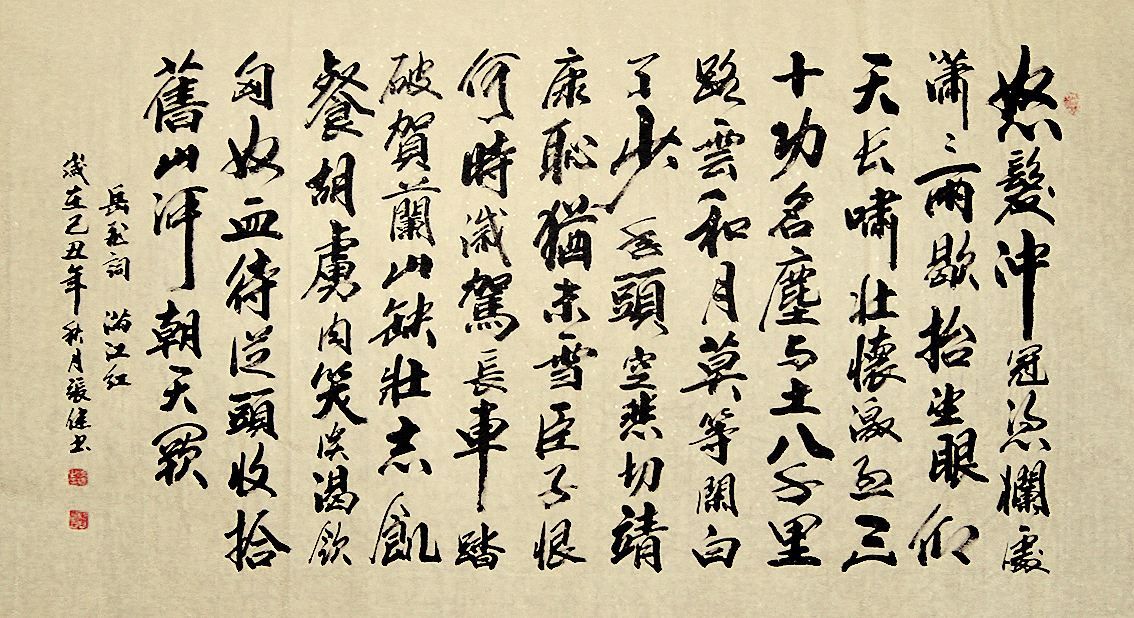 怒髮沖冠憑欄處
瀟〻雨歇抬望眼仰
天长嘯壯懷激烈三
十功名塵与土八千里
路雲和月莫等閑白
了少年頭空悲切靖
康恥猶未雪臣子恨
何時滅駕長車踏
破賀蘭山缺壯志飢
餐胡虜肉笑談渴飲
匈奴血待從頭收拾
舊山河朝天闕
岳飛詞 滿江紅
歲在己丑年秋月張健书